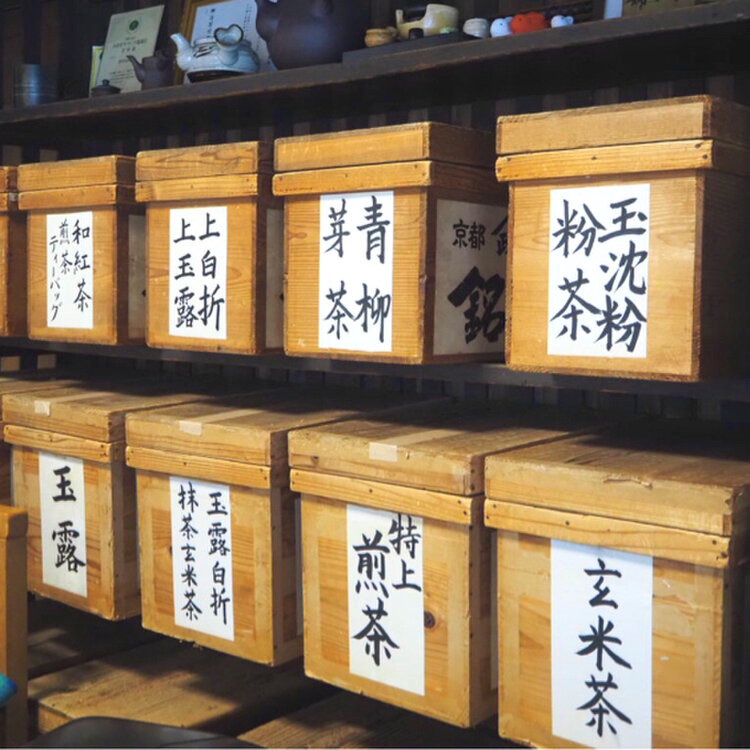 和紅茶
煎茶
ティーバッグ
上白折
上玉露
青柳
芽茶
京都
銘
玉沈粉
粉茶
玉露
玉露白折
抹茶玄米茶
特上
煎茶
玄米茶